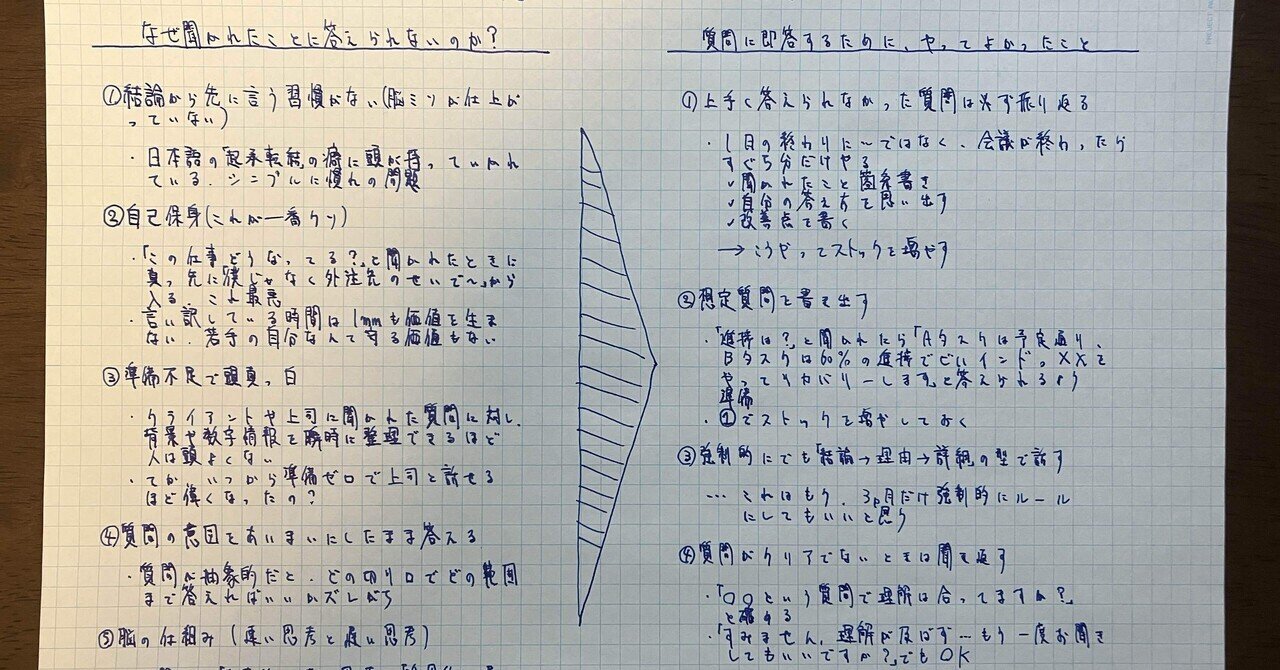 なぜ聞かれたことに答えられないのか?
①結論から先に言う習慣がない(脳ミソが仕上が
っていない)
・日本語の「起承転結」の癖に頭が持っていかれ
ている。シンプルに慣れの問題
②自己保身(これが一番クソ)
・「この仕事どうなってる?」と聞かれたときに
真っ先に「僕じゃなく外注先のせいで〜」から
入る。これ最悪
・言い訳している時間は1mmも価値を生ま
ない。若手の自分なんて守る価値もない
③準備不足で頭真っ白
・クライアントや上司に聞かれた質問に対し、
背景や数字情報を瞬時に整理できるほど
人は頭よくない
・てか、いつから準備ゼロで上司と話せる
ほど偉くなったの?
④質問の意図をあいまいにしたまま答える
・質問が抽象的だと、どの切り口でどの範囲
まで答えればいいかズレがち
⑤脳の仕組み(速い思考と遅い思考)
質問に即答するために、やってよかったこと
①上手く答えられなかった質問は必ず振り返る
・1日の終わりに〜ではなく、会議が終わったら
すぐ5分だけやる
✓聞かれたこと箇条書き
✓自分の答え方を思い出す
✓改善点を書く
→こうやってストックを増やす
②想定質問を書き出す
・「進捗は?」と聞かれたら「Aタスクは予定通り、
Bタスクは60%の進捗でビハインド。XXを
やってリカバリーします」と答えられるよう
準備
・①でストックを増やしておく
③強制的にでも「結論→理由→詳細」の型で話す
…これはもう、3ヶ月だけ強制的にルール
にしてもいいと思う
④質問がクリアでないときは聞き返す
・「〇〇という質問で理解は合ってますか?」
と確認する
・「すみません、理解が及ばず…もう一度お聞き
してもいいですか?」でもOK